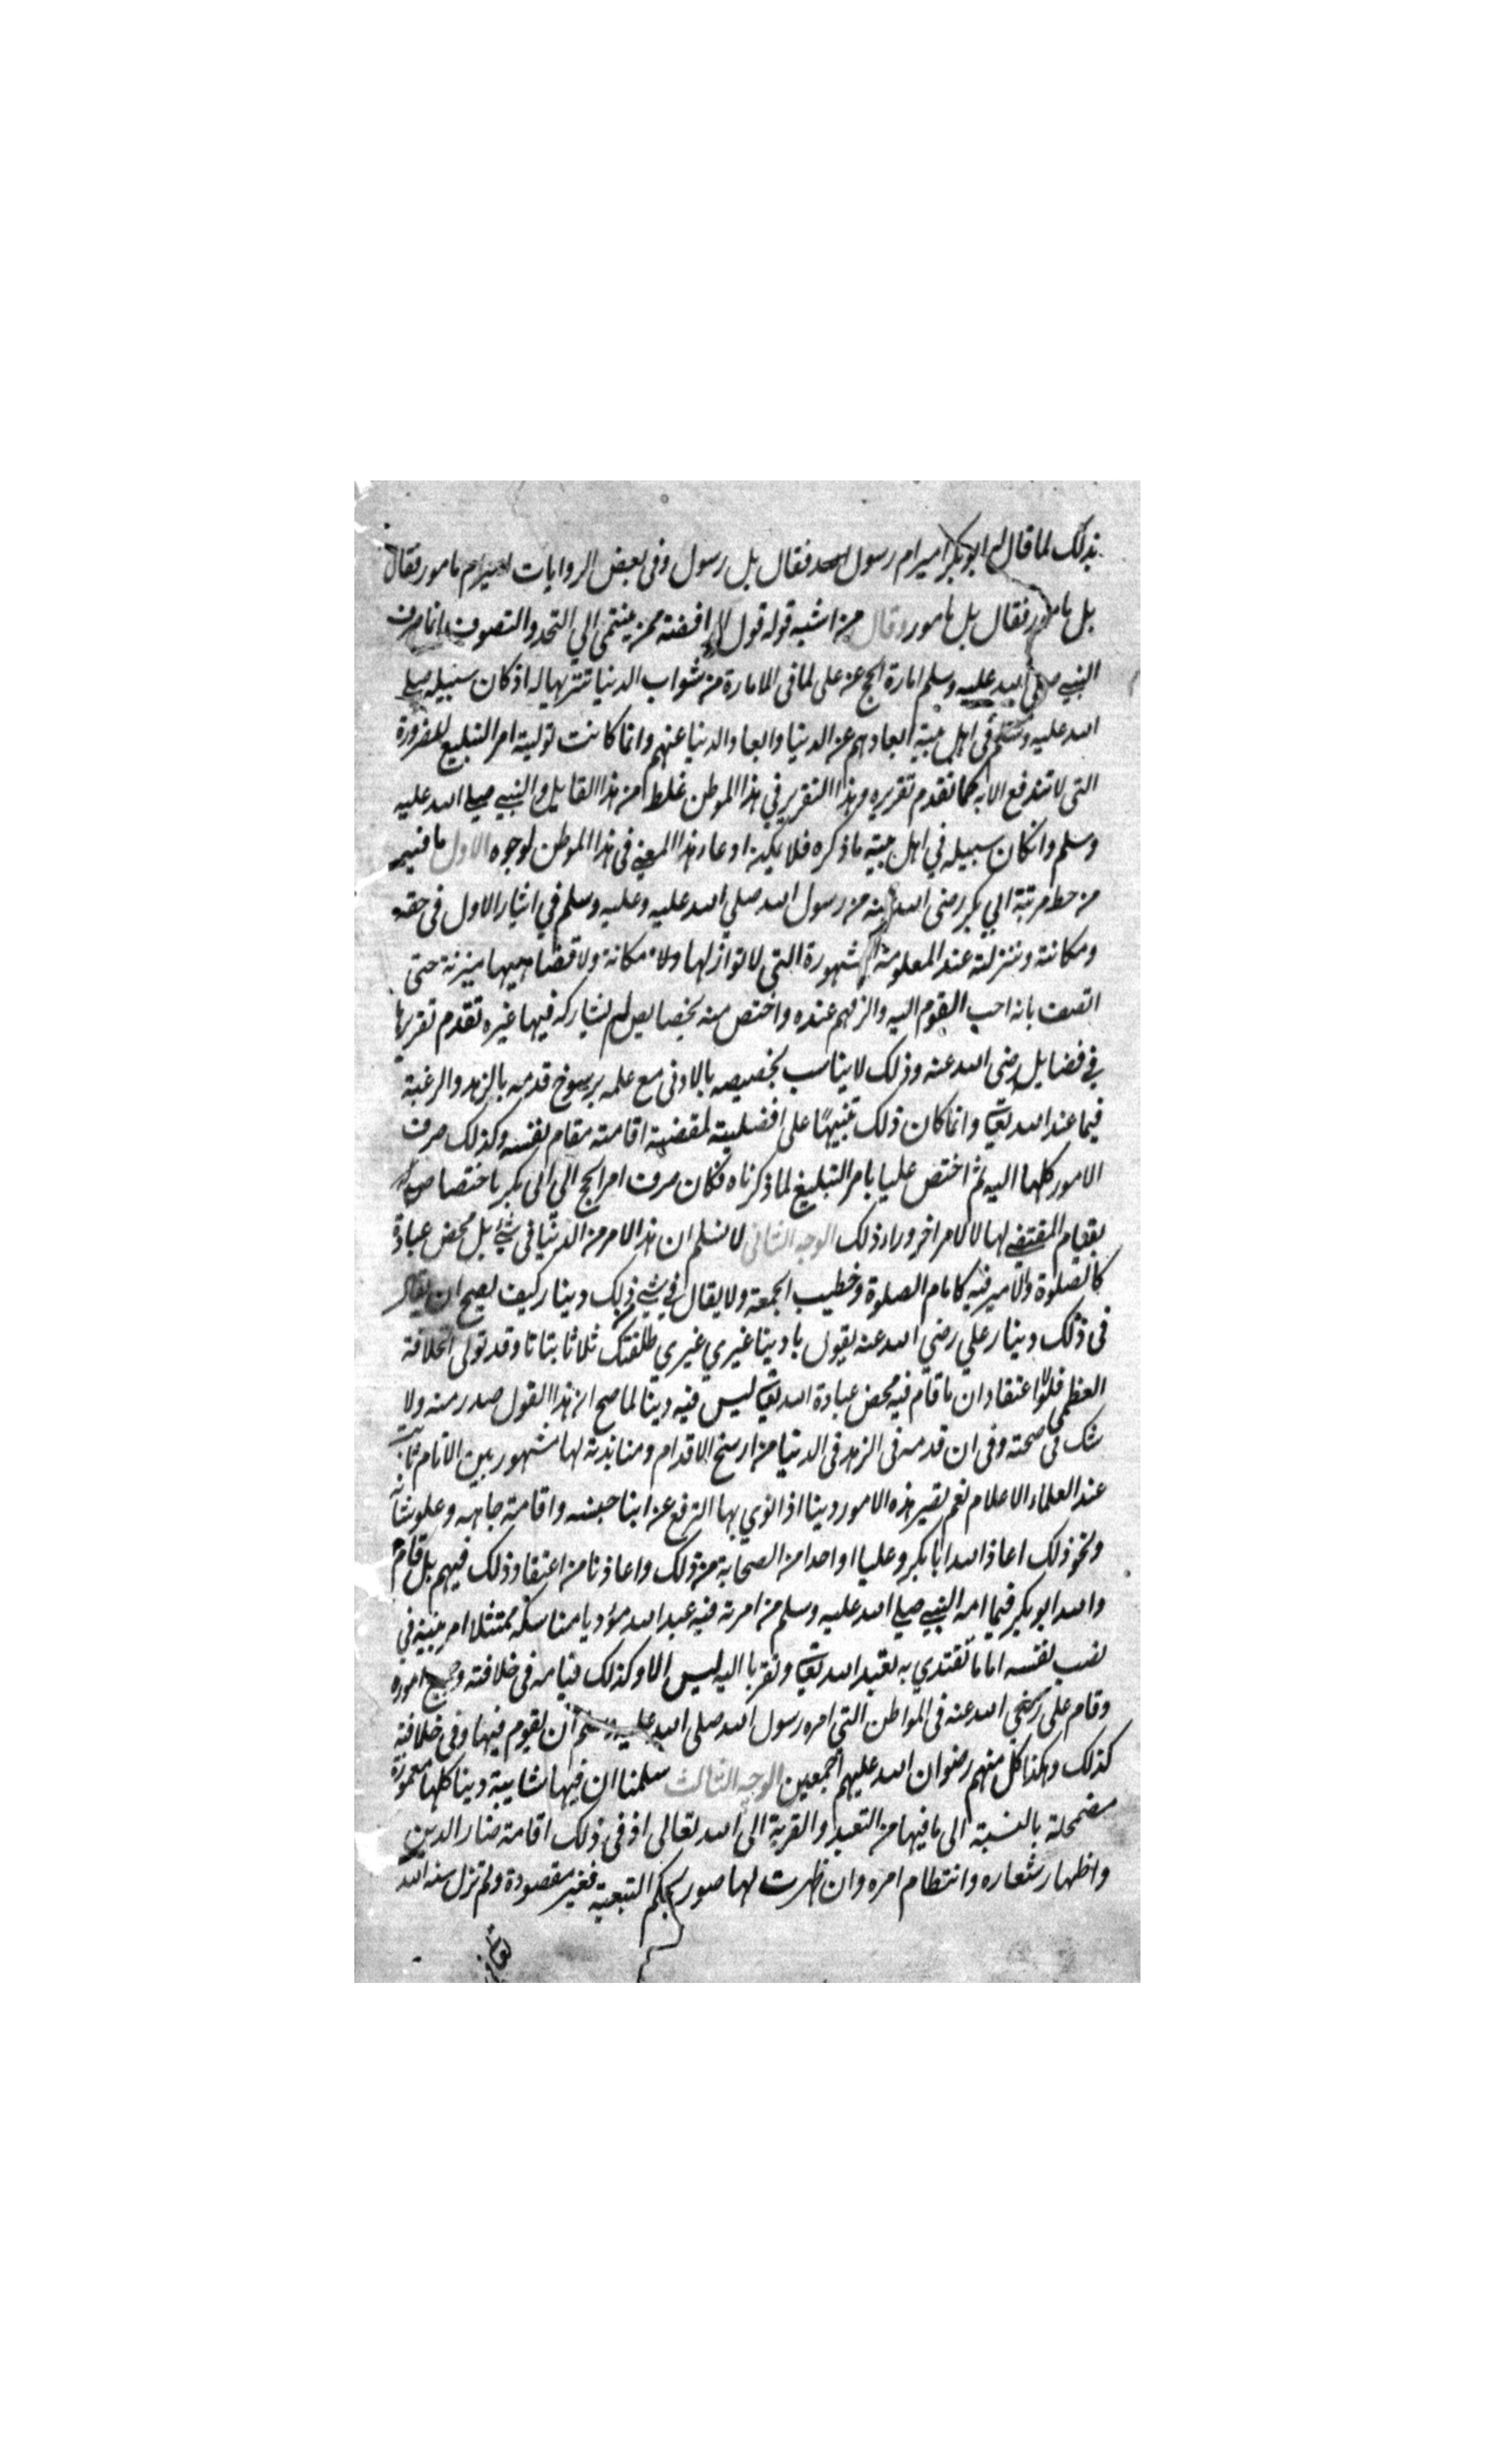 بذلك لما قال له ابو بكر امير ام رسول فقال بل رسول وفى بعض الروايات امير ام مامور فقال
بل مامور فقال بل مامور وقال من اشبه قوله قول الرافضة ممن ينتمى الي التحد والتصوف انما صرف
النبي صلى الله عليه وسلم امارة الحج عن على لما فى الامارة من شواب الدنيا تنزيها له اذ كان سبيله صلى
الله عليه وسلم فى اهل بيته ابعادهم عن الدنيا وابعاد الدنيا عنهم وانما كانت توليته امر التبليغ للضرورة
التى لا تندفع الا به كما تقدم تقريره وهذا التقرير في هذا الموطن غلط من هذا القايل والنبي صلى الله عليه
وسلم وان كان سبيله في اهل بيته ما ذكره فلا يمكنه ادعاء هذا المعنى فى هذا الموطن لوجوه الاول ما فيه
من حط مرتبة ابي بكر رضى الله عنه من رسول الله صلي الله عليه وعليه وسلم في ايثار الاول فى حقه
ومكانته ومنزلته عند المعلومة المشهورة التى لا توازيها ولا مكانة ولا تضاهيها منزلة حتى
اتصف بانه احب القوم اليه والزمهم عنده واختص منه بخصايص لم يشاركه فيها غيره تقدم تقريرها
في فضايل رضى الله عنه وذلك لا يناسب تخصيصه بالادنى مع علمه برسوخ قدمه بالزهد والرغبة
فيما عند الله تعالى وانما كان ذلك تنبيها على افضليته لمقضية اقامته مقام نفسه وكذلك صرف
الامور كلها اليه ثم اختص عليا بامر التبليغ لما ذكرناه فكان صرف امر الحج الي ابى بكر باختصاصه
بمقام المقتضى لها لا لامر اخر وراء ذلك الوجه الثانى لا نسلم ان هذا الامر من الدنيا فى شئ بل محض عبادة
كالصلوة والامير فيه كامام الصلوة وخطيب الجمعة ولا يقال في شي ذلك دينا ركيف يصح ان يقال
فى ذلك دينا رعلي رضي الله عنه يقول يا دينا غيري غيري طلقتك ثلاثا بتاتا وقد تولى الخلافة
العظمى فلولا اعتقاد ان ما قام فيه محض عبادة الله تعالى ليس فيه دينا لما صح ان هذا القول صدر منه ولا
شك في صحته وفى ان قدمه فى الزهد فى الدنيا من ارسخ الاقدام ومنابذته لها مشهور بين الانام ثابت
عند العلماء الاعلام نعم تصير هذه الامور دينا اذا نوي بها الترفع عن ابنا جنسه واقامة جاهه وعلو شانه
ونحو ذلك اعاذ الله ابا بكر وعليا او احدا من الصحابة من ذلك واعاذنا من اعتقاد ذلك فيهم بل قام
والله ابو بكر فيما امه النبي صلى الله عليه وسلم من امرته فيه عبد الله مؤديا مناسكه ممتثلا امر نبيه في
نصب نفسه اماما تقتدي به تعبد الله تعالى وتقربا اليه ليس الا وكذلك قيامه فى خلافته وجميع اموره
وقام على رضي الله عنه فى المواطن التي امره رسول الله صلى الله عليه وسلم ان يقوم فيها وفى خلافته
كذلك وهكذا كل منهم رضوان الله عليهم اجمعين الوجه الثالث سلمنا ان فيها شايبة دينا كلها مغمورة
مضمحلة بالنسبة الى ما فيها من التعبد والقربة الى الله تعالى اذ فى ذلك اقامة منار الدين
واظهار شعاره وانتظام امره وان ظهرت لها صور بحكم التبعية فغير مقصودة ولم تزل سنة الله